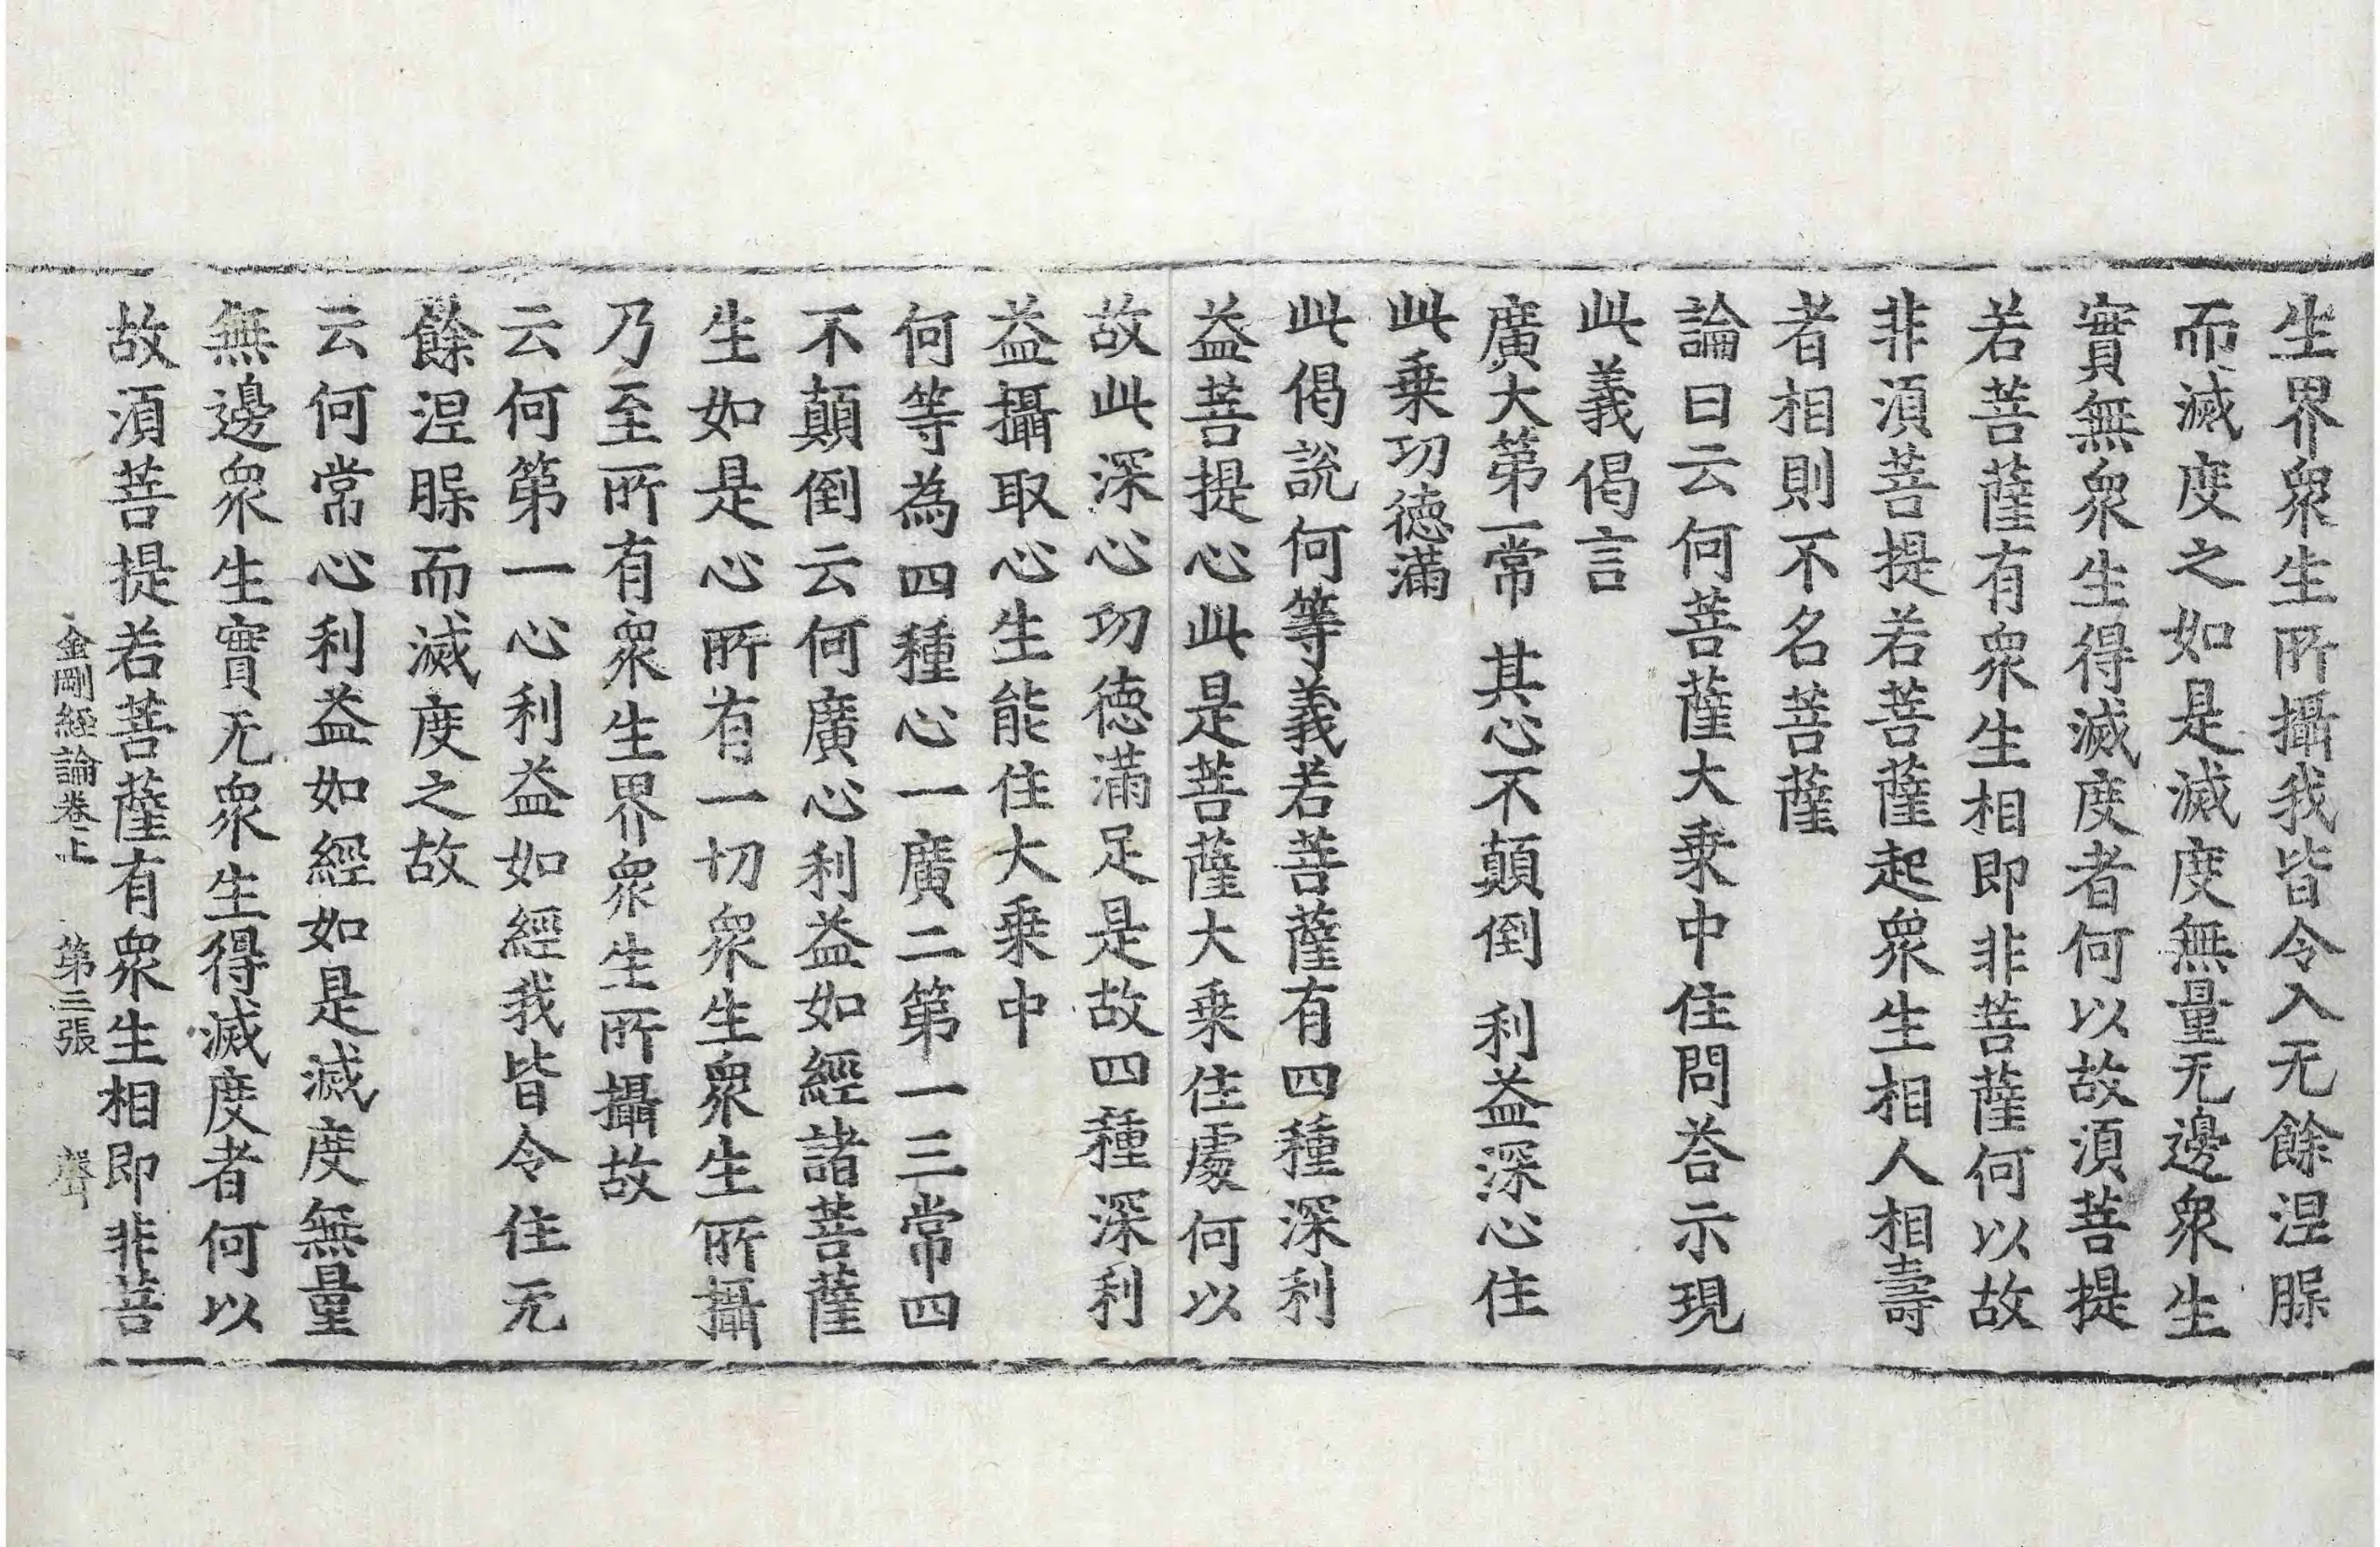 生界衆生所攝我皆令入无餘涅槃
而滅度之如是滅度無量无邊衆生
實無衆生得滅度者何以故須菩提
若菩薩有衆生相即非菩薩何以故
非須菩提若菩薩起衆生相人相壽
者相則不名菩薩
論曰云何菩薩大乗中住問荅示現
此義偈言
廣大第一常　其心不顛倒　利益深心住
此乗功德滿
此偈說何等義若菩薩有四種深利
益菩提心此是菩薩大乗住處何以
故此深心功德滿足是故四種深利
益攝取心生能住大乗中
何等為四種心一廣二第一三常四
不顛倒云何廣心利益如經諸菩薩
生如是心所有一切衆生衆生所攝
乃至所有衆生界衆生所攝故
云何第一心利益如經我皆令住无
餘涅槃而滅度之故
云何常心利益如經如是滅度無量
無邊衆生實无衆生得滅度者何以
故須菩提若菩薩有衆生相即非菩
金剛經論卷上　第三張　聲